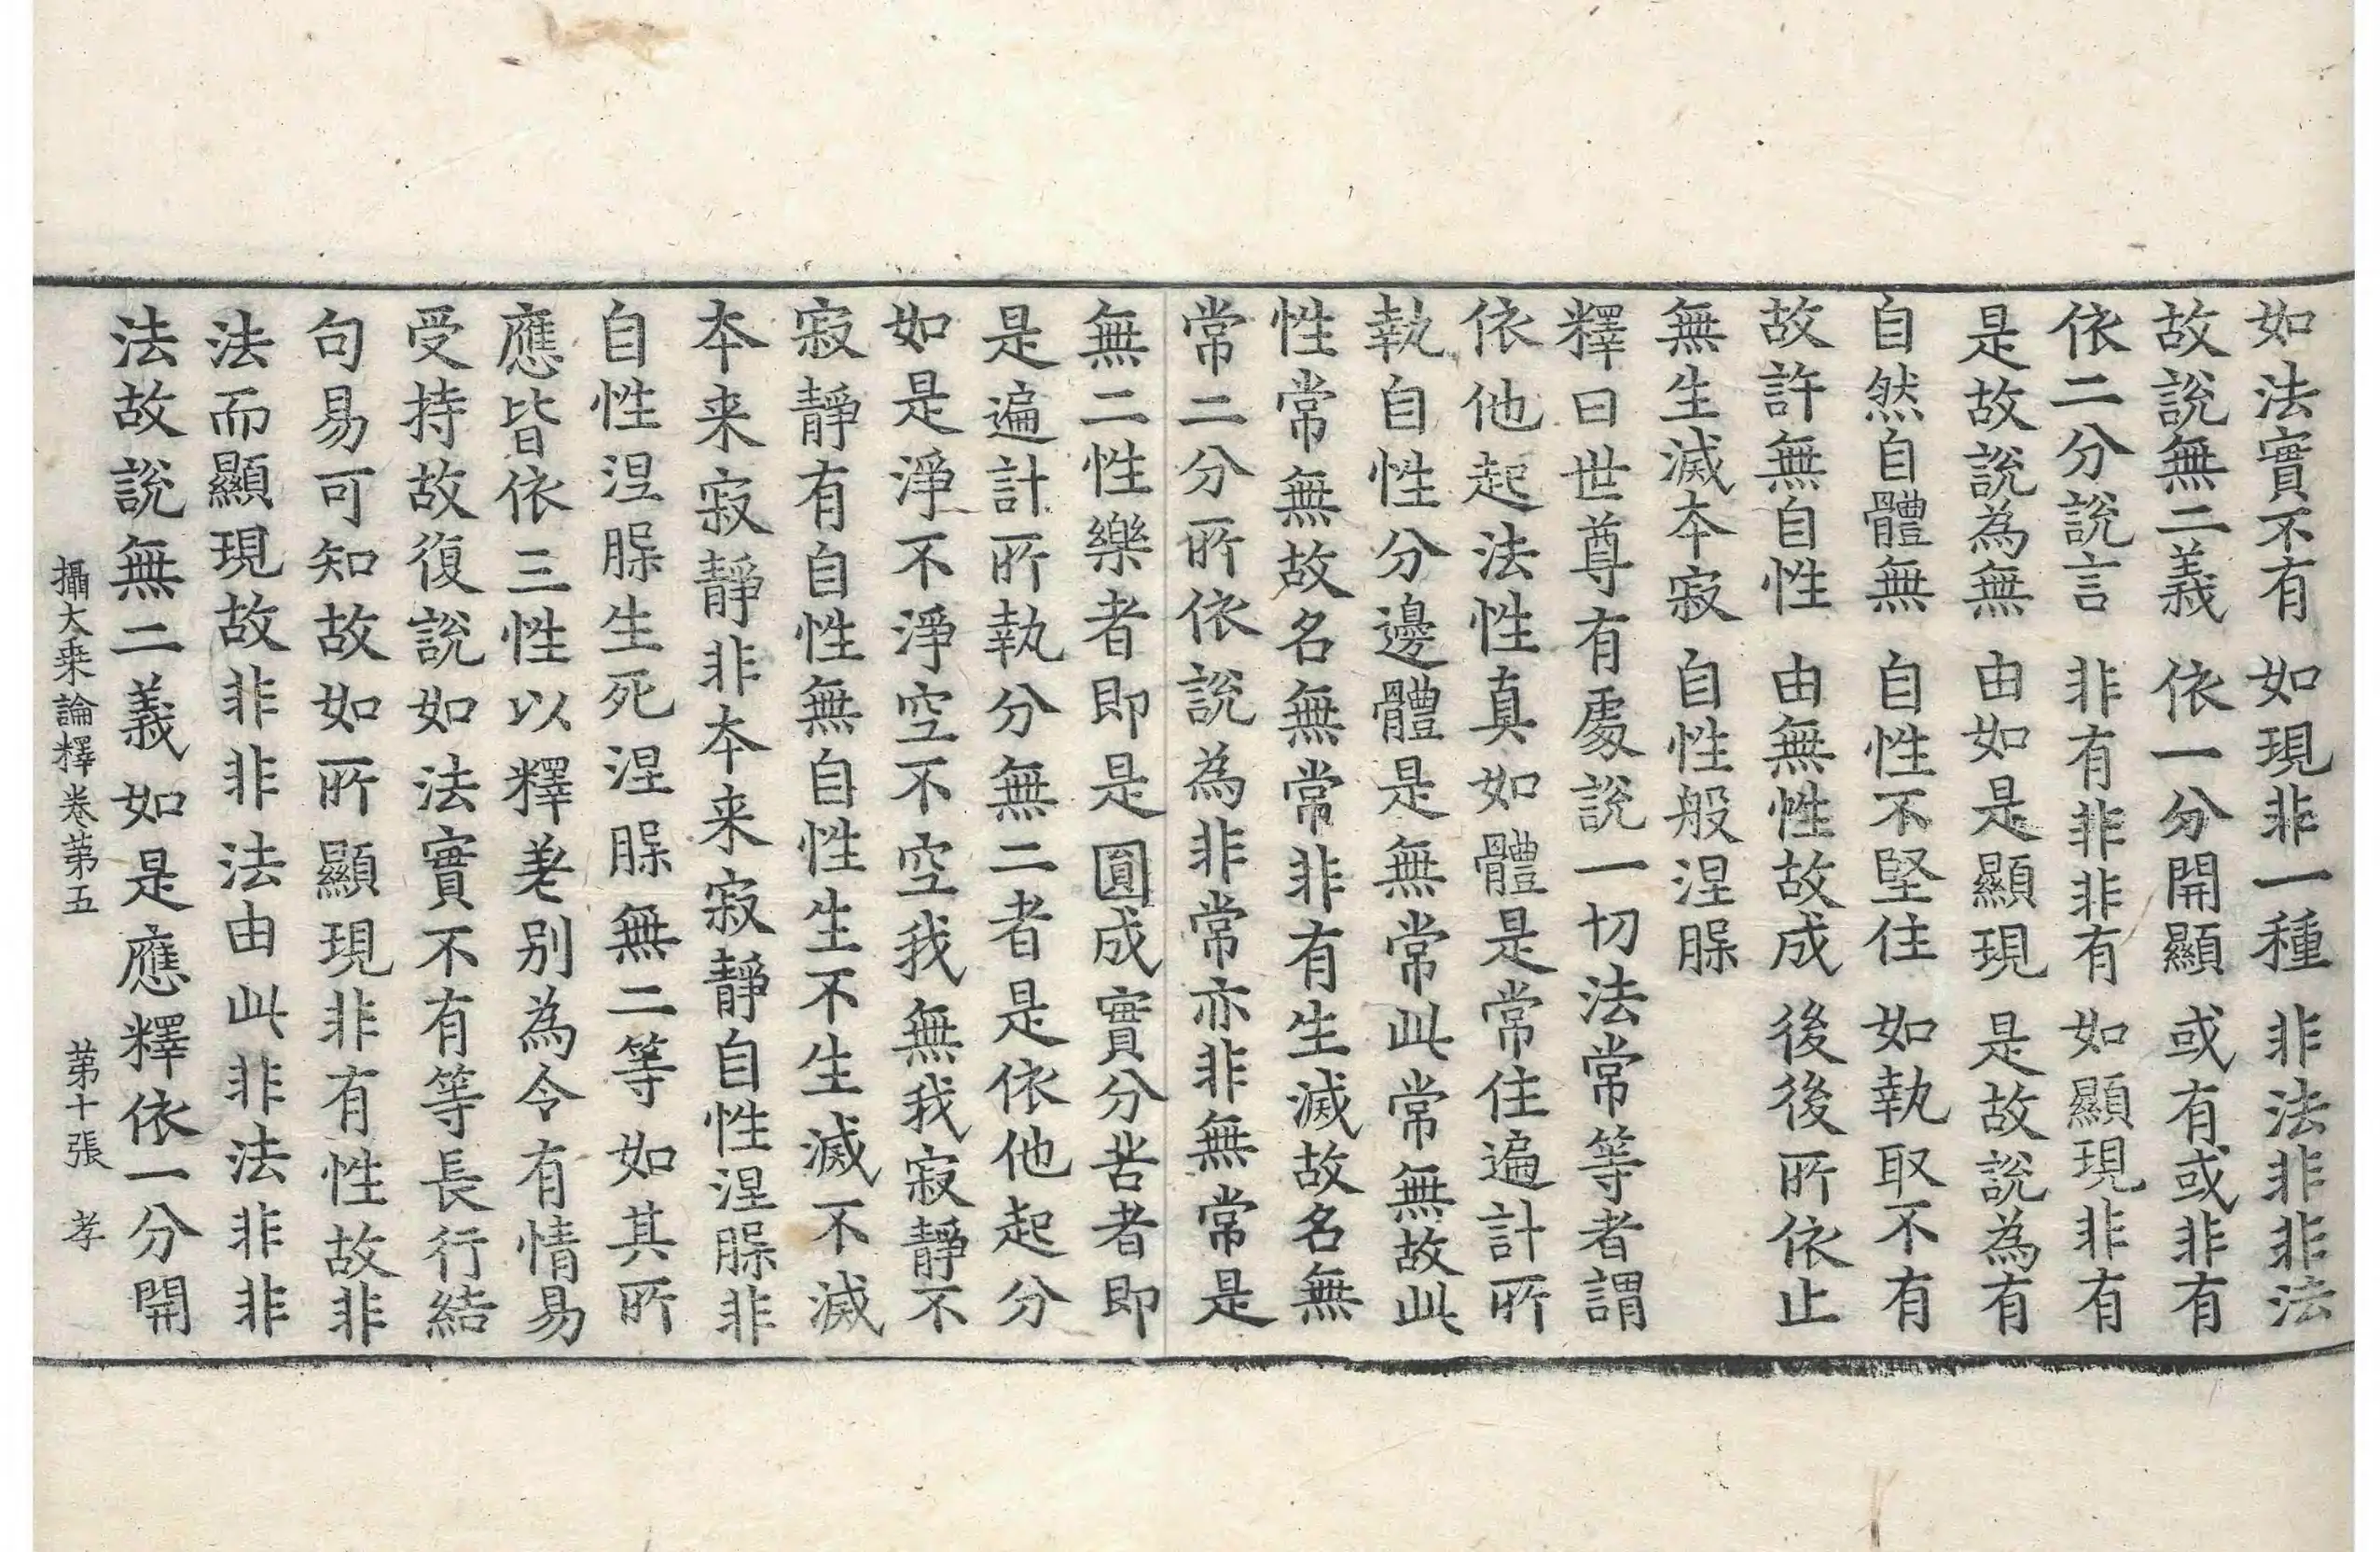 如法實不有　如現非一種　非法非非法
故說無二義　依一分開顯　或有或非有
依二分說言　非有非非有　如顯現非有
是故說為無　由如是顯現　是故說為有
自然自體無　自性不堅住　如執取不有
故許無自性　由無性故成　後後所依止
無生滅本寂　自性般涅腺
釋曰世尊有處說一切法常等者謂
依他起法性真如體是常住遍計所
執自性分邊體是無常此常無故此
性常無故名無常非有生滅故名無
常二分所依說為非常亦非無常是
無二性樂者即是圓成實分苦者即
是遍計所執分無二者是依他起分
如是淨不淨空不空我無我寂靜不
寂靜有自性無自性生不生滅不滅
本来寂靜非本来寂靜自性涅腺非
自性涅腺生死涅腺無二等如其所
應皆依三性以釋差别為令有情易
受持故復說如法實不有等長行結
句易可知故如所顯現非有性故非
法而顯現故非非法由此非法非非
法故說無二義如是應釋依一分開
攝大乗論釋卷第五　第十張　孝